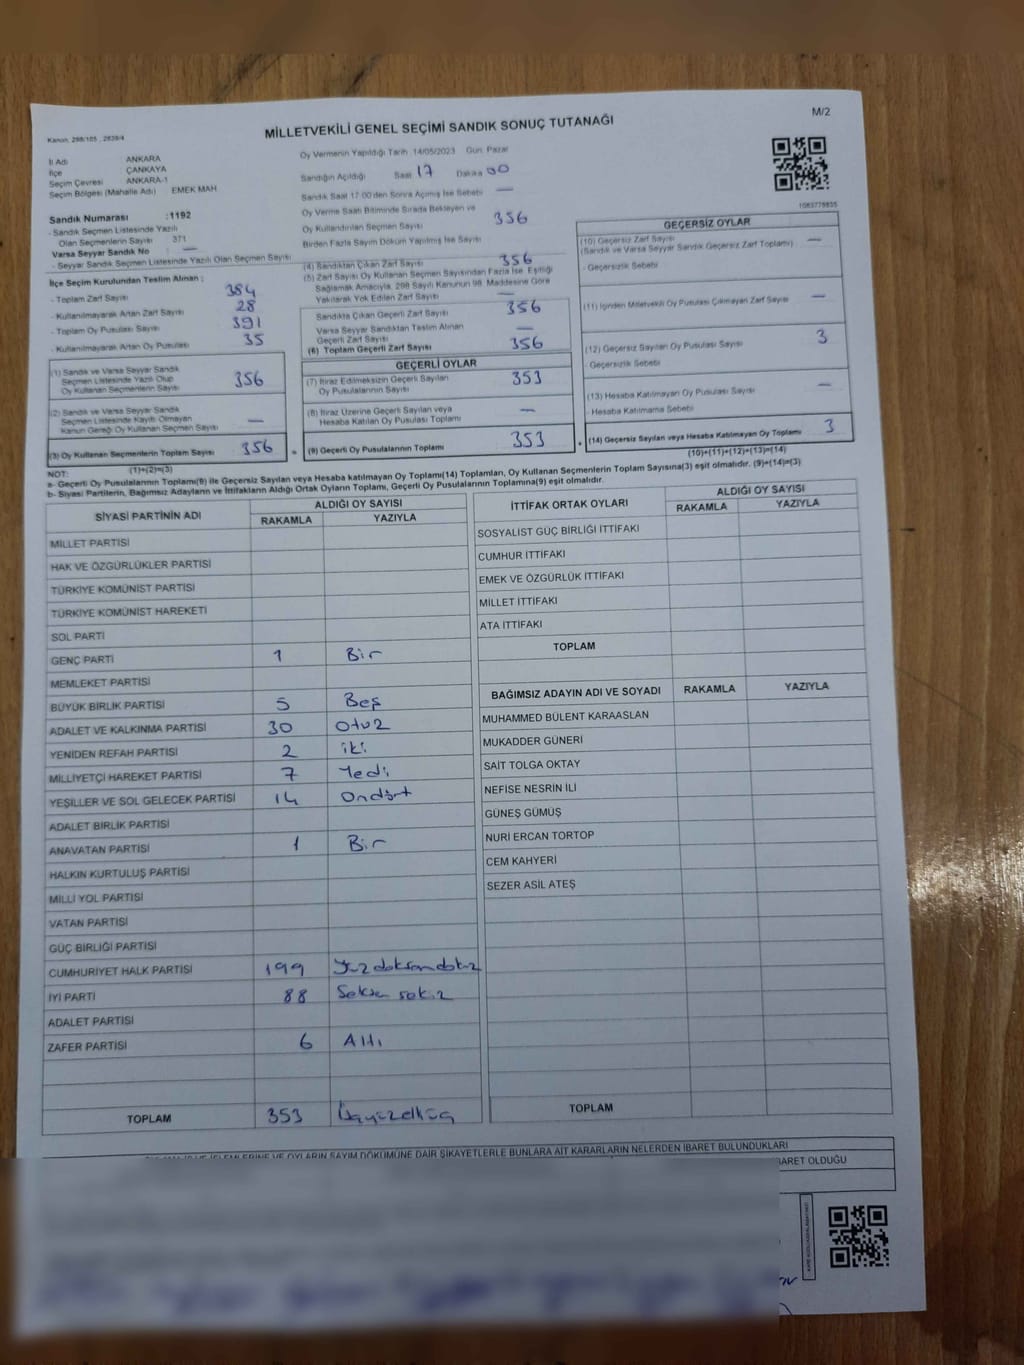 M/2
Kanun: 298/105 , 2839/4
MİLLETVEKİLİ GENEL SEÇİMİ SANDIK SONUÇ TUTANAĞI
İl Adı ANKARA
İlçe ÇANKAYA
Seçim Çevresi ANKARA-1
Seçim Bölgesi (Mahalle Adı) EMEK MAH
Sandık Numarası :1192
- Sandık Seçmen Listesinde Yazılı
Olan Seçmenlerin Sayısı 371
Varsa Seyyar Sandık No : —
- Seyyar Sandık Seçmen Listesinde Yazılı Olan Seçmen Sayısı
İlçe Seçim Kurulundan Teslim Alınan ;
- Toplam Zarf Sayısı 384
- Kullanılmayarak Artan Zarf Sayısı 28
- Toplam Oy Pusulası Sayısı 391
- Kullanılmayarak Artan Oy Pusulası 35
(1) Sandık ve Varsa Seyyar Sandık
Seçmen Listesinde Yazılı Olup
Oy Kullanan Seçmenlerin Sayısı 356
(2) Sandık ve Varsa Seyyar Sandık
Seçmen Listesinde Kayıtlı Olmayan
Kanun Gereği Oy Kullanan Seçmen Sayısı —
(3) Oy Kullanan Seçmenlerin Toplam Sayısı 356
(1)+(2)=(3)
Oy Vermenin Yapıldığı Tarih :14/05/2023 Gün: Pazar
Sandığın Açıldığı Saat 17 Dakika 00
Sandık Saat 17:00'den Sonra Açılmış İse Sebebi —
Oy Verme Saati Bitiminde Sırada Bekleyen ve
Oy Kullandırılan Seçmen Sayısı 356
Birden Fazla Sayım Döküm Yapılmış İse Sayısı
(4) Sandıktan Çıkan Zarf Sayısı 356
(5) Zarf Sayısı Oy Kullanan Seçmen Sayısından Fazla İse, Eşitliği
Sağlamak Amacıyla, 298 Sayılı Kanunun 98. Maddesine Göre
Yakılarak Yok Edilen Zarf Sayısı —
Sandıkta Çıkan Geçerli Zarf Sayısı 356
Varsa Seyyar Sandıktan Teslim Alınan
Geçerli Zarf Sayısı —
(6) Toplam Geçerli Zarf Sayısı 356
GEÇERLİ OYLAR
(7) İtiraz Edilmeksizin Geçerli Sayılan
Oy Pusulalarının Sayısı 353
(8) İtiraz Üzerine Geçerli Sayılan veya
Hesaba Katılan Oy Pusulası Toplamı —
(9) Geçerli Oy Pusulalarının Toplamı 353
1083778835
GEÇERSİZ OYLAR
(10) Geçersiz Zarf Sayısı
(Sandık ve Varsa Seyyar Sandık Geçersiz Zarf Toplamı) —
- Geçersizlik Sebebi
(11) İçinden Milletvekili Oy Pusulası Çıkmayan Zarf Sayısı —
(12) Geçersiz Sayılan Oy Pusulası Sayısı 3
- Geçersizlik Sebebi
(13) Hesaba Katılmayan Oy Pusulası Sayısı —
- Hesaba Katılmama Sebebi
(14) Geçersiz Sayılan veya Hesaba Katılmayan Oy Toplamı 3
(10)+(11)+(12)+(13)=(14)
NOT:
a- Geçerli Oy Pusulalarının Toplamı(9) ile Geçersiz Sayılan veya Hesaba katılmayan Oy Toplamı(14) Toplamları, Oy Kullanan Seçmenlerin Toplam Sayısına(3) eşit olmalıdır. (9)+(14)=(3)
b- Siyasi Partilerin, Bağımsız Adayların ve İttifakların Aldığı Ortak Oyların Toplamı, Geçerli Oy Pusulalarının Toplamına(9) eşit olmalıdır.
SİYASİ PARTİNİN ADI ALDIĞI OY SAYISI
RAKAMLA YAZIYLA
MİLLET PARTİSİ
HAK VE ÖZGÜRLÜKLER PARTİSİ
TÜRKİYE KOMÜNİST PARTİSİ
TÜRKİYE KOMÜNİST HAREKETİ
SOL PARTİ
GENÇ PARTİ 1 Bir
MEMLEKET PARTİSİ
BÜYÜK BİRLİK PARTİSİ 5 Beş
ADALET VE KALKINMA PARTİSİ 30 Otuz
YENİDEN REFAH PARTİSİ 2 iki
MİLLİYETÇİ HAREKET PARTİSİ 7 Yedi
YEŞİLLER VE SOL GELECEK PARTİSİ 14 Ondört
ADALET BİRLİK PARTİSİ
ANAVATAN PARTİSİ 1 Bir
HALKIN KURTULUŞ PARTİSİ
MİLLİ YOL PARTİSİ
VATAN PARTİSİ
GÜÇ BİRLİĞİ PARTİSİ
CUMHURİYET HALK PARTİSİ 199 Yüz doksan dokuz
İYİ PARTİ 88 Seksen sekiz
ADALET PARTİSİ
ZAFER PARTİSİ 6 Altı
TOPLAM 353 Üçyüzelliüç
İTTİFAK ORTAK OYLARI ALDIĞI OY SAYISI
RAKAMLA YAZIYLA
SOSYALİST GÜÇ BİRLİĞİ İTTİFAKI
CUMHUR İTTİFAKI
EMEK VE ÖZGÜRLÜK İTTİFAKI
MİLLET İTTİFAKI
ATA İTTİFAKI
TOPLAM
BAĞIMSIZ ADAYIN ADI VE SOYADI RAKAMLA YAZIYLA
MUHAMMED BÜLENT KARAASLAN
MUKADDER GÜNERİ
SAİT TOLGA OKTAY
NEFİSE NESRİN İLİ
GÜNEŞ GÜMÜŞ
NURİ ERCAN TORTOP
CEM KAHYERİ
SEZER ASİL ATEŞ
TOPLAM
İŞLEMLERİNE VE OYLARIN SAYIM DÖKÜMÜNE DAİR ŞİKAYETLERLE BUNLARA AİT KARARLARIN NELERDEN İBARET BULUNDUKLARI
BARET OLDUĞU